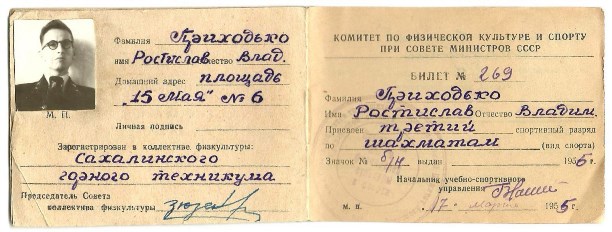 Фамилия Приходько
имя Ростислав отчество Влад.
Домашний адрес площадь
"15 Мая" № 6
М. П.
Личная подпись
Зарегистрирован в коллективе физкультуры:
Сахалинского
горного техникума
Председатель Совета
коллектива физкультуры
КОМИТЕТ ПО ФИЗИЧЕСКОЙ КУЛЬТУРЕ И СПОРТУ
ПРИ СОВЕТЕ МИНИСТРОВ СССР
БИЛЕТ № 269
Фамилия Приходько
Имя Ростислав Отчество Владим.
Присвоен третий спортивный разряд
по шахматам (вид спорта)
Значок № б/н выдан 1955г.
Начальник учебно-спортивного
управления
М. П. 17 марта 1955г.